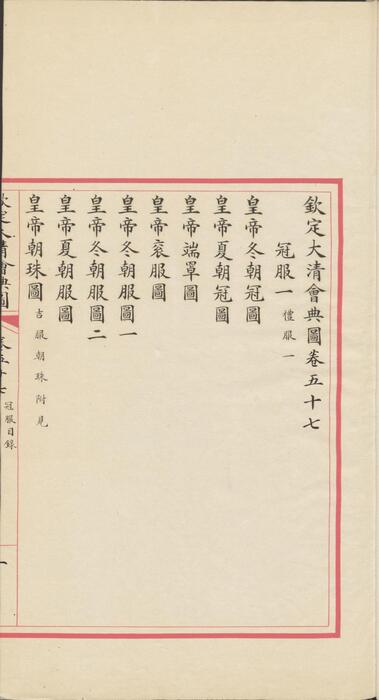 欽定大清會典圖卷五十七
冠服一 禮服一
皇帝冬朝冠圖
皇帝夏朝冠圖
皇帝端罩圖
皇帝袞服圖
皇帝冬朝服圖一
皇帝冬朝服圖二
皇帝夏朝服圖
皇帝朝珠圖 吉服朝珠附見
欽定大清會典圖
卷五十七 冠服目錄
一